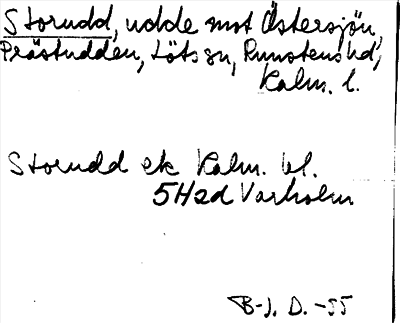 Storudd, udde mot Östersjön,
Prästudden, Löts sn, Runstens hd,
Kalm. l.
Storudd ek Kalm. bl.
5H2d Varholm
B-J. D. -55